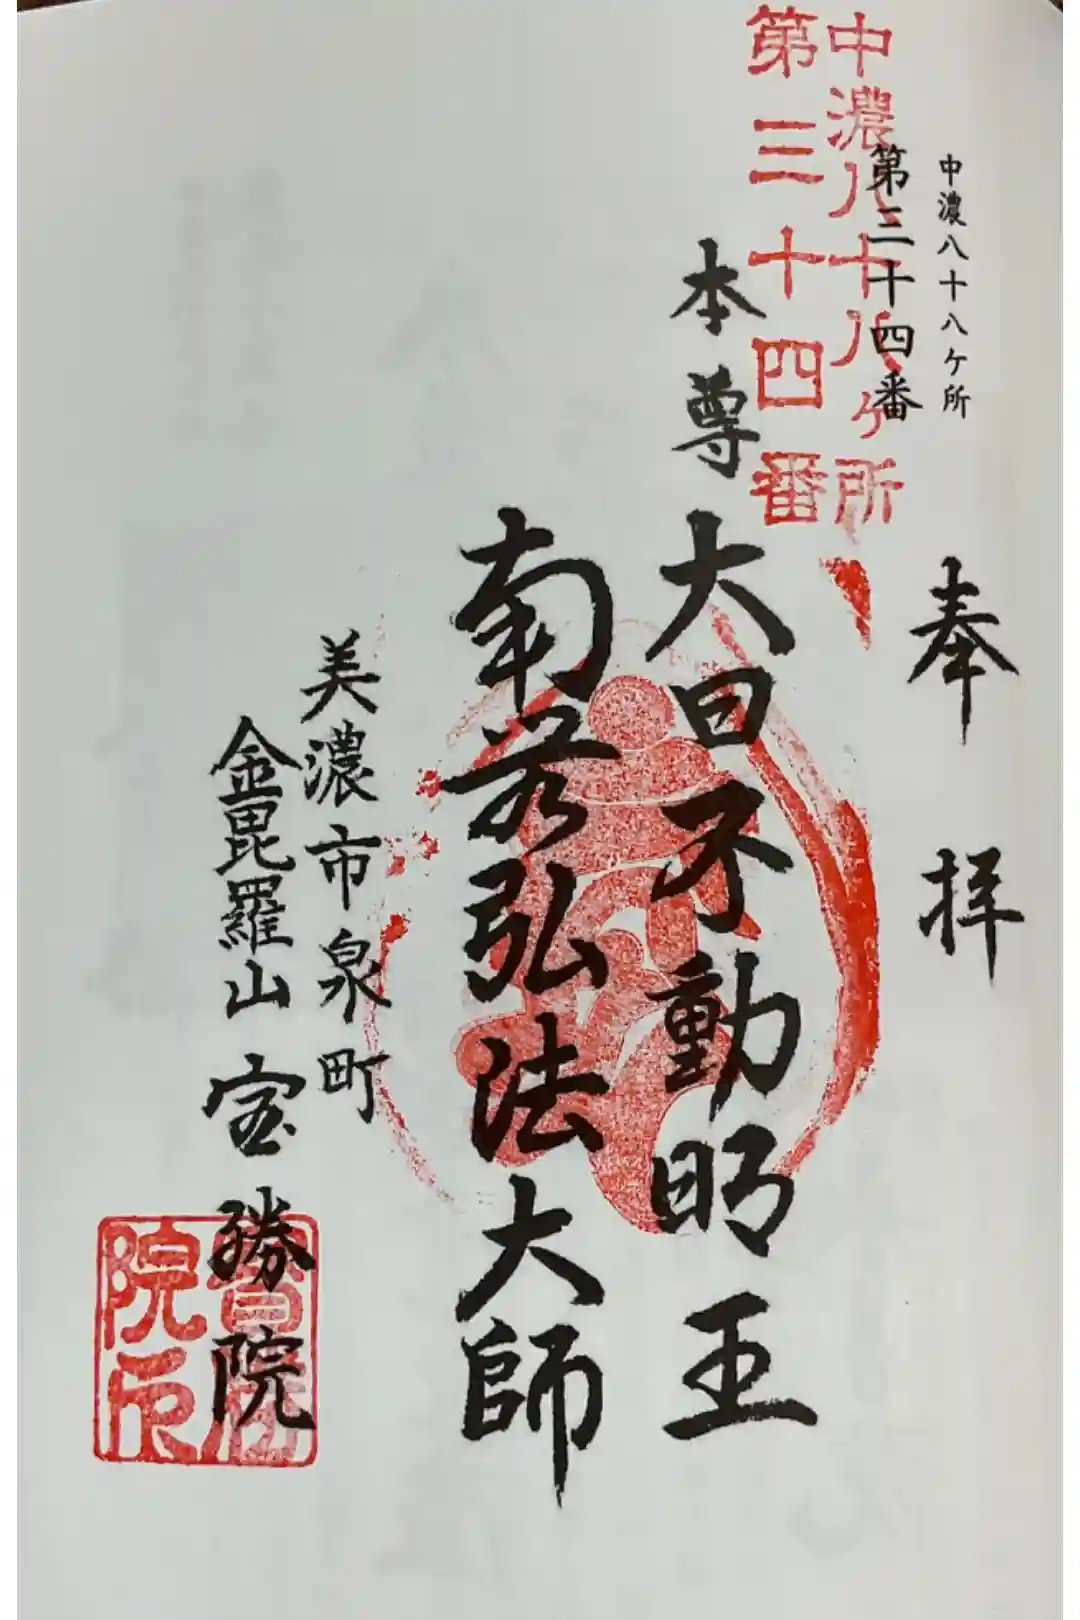 中濃八十八ケ所
第三十四番
奉拝
中濃八十八ヶ所
第三十四番
本尊
大日不動明王
南無弘法大師
美濃市泉町
金毘羅山 宝勝院
寶勝
院印